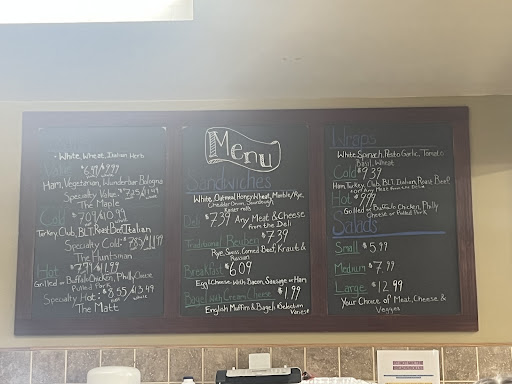 • White, Wheat, Italian Herb
Ham, Vegetarian, Wunderbar Bologna
Specialty Value:
The Maple
Cold
$7.09/10.99
Turkey, Club, BLT, Roast Beef, Italian
Specialty Cold:
The Huntsman
Hot
$7.99/11.99
Grilled or Buffalo Chicken, Philly Cheese
Pulled Pork
Specialty Hot: $8.55/13.49
whole
The Matt
Menu
Sandwiches
White, Oatmeal, Honey Wheat, Marble/Rye,
Cheddar Onion, Sourdough
Deli $7.39 Any Meat & Cheese
from the Deli
Traditional Reuben $7.39
Rye, Swiss, Corned Beef, Kraut &
Russian
Breakfast $6.09
Egg & Cheese with Bacon, Sausage or Ham
Bagel with Cream Cheese $1.99
English Muffins & Bagels Selection
Varies
Wraps
White, Spinach, Pesto Garlic, Tomato
Basil, Wheat
Cold $9.39
Ham, Turkey, Club, BLT, Italian, Roast Beef
or Any Meat from the Deli
Hot $9.99
Grilled or Buffalo Chicken, Philly
Cheese or Pulled Pork
Salads
Small $5.99
Medium $7.99
Large $12.99
Your Choice of Meat, Cheese &
Veggies